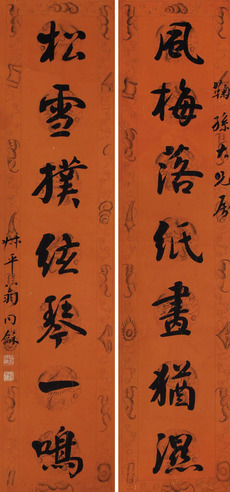 鞠孫大兄屬
風梅落紙畫猶濕
松雪撲弦琴一鳴
叔平翁同龢